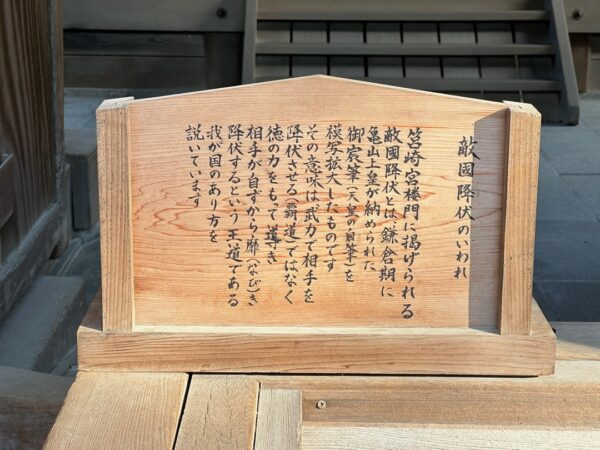 敵國降伏のいわれ
筥崎宮楼門に掲げられる
敵國降伏とは、鎌倉期に
亀山上皇が納められた
御宸筆（天皇の自筆）を
模写拡大したものです
その意味は武力で相手を
降伏させる（覇道）ではなく
徳の力をもって導き
相手が自ずから靡（なび）き
降伏するという王道である
我が国のあり方を
説いています